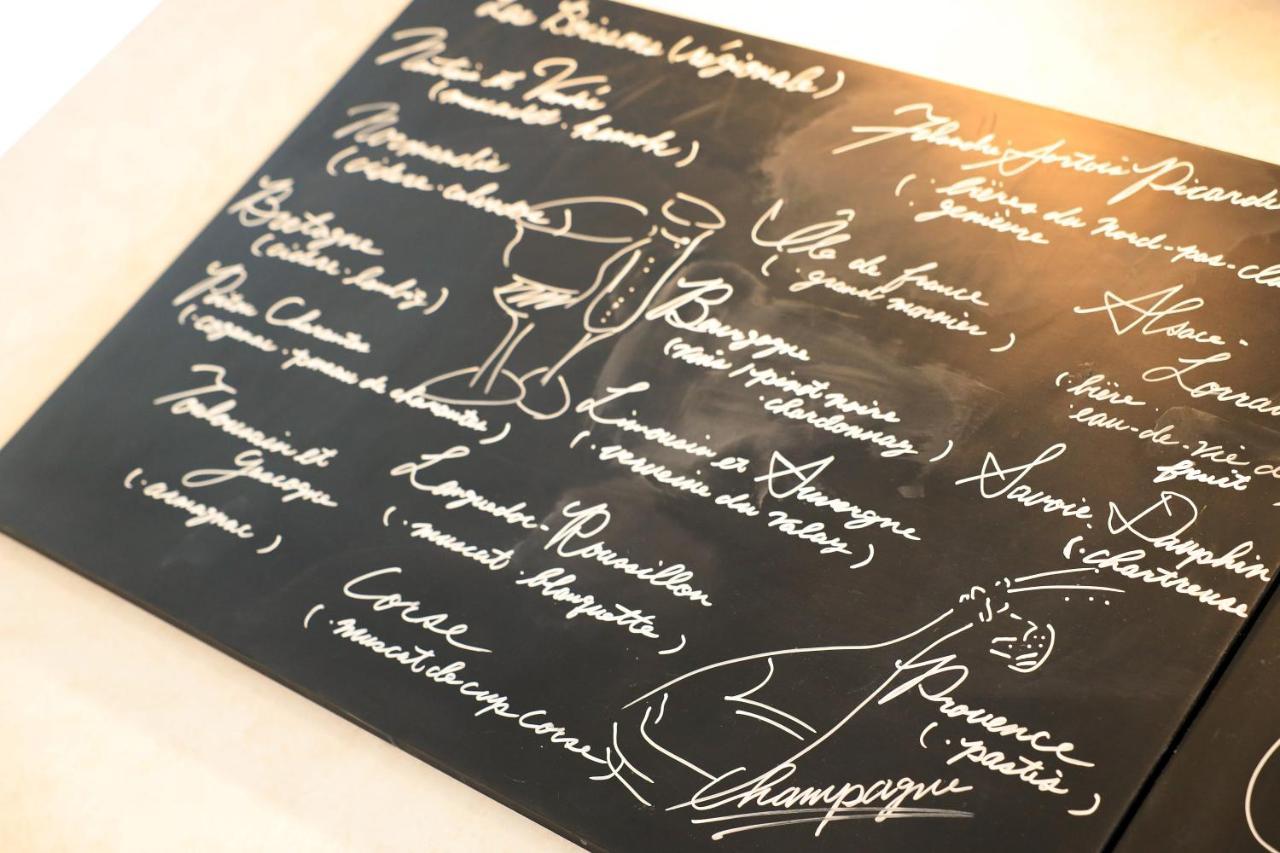 Les Boissons (régionale)
Nantes et Vendée
(muscadet · kamok)
Normandie
(cidre · calvados)
Bretagne
(cidre · lambig)
Poitou Charentes
(cognac · pineau de charentes)
Toulousain et
Gascogne
(· armagnac)
Languedoc-Roussillon
(· muscat · blanquette)
Corse
(· muscat de cap Corse)
Artois Picardie
(· bières du nord-pas-
· genièvre
Île de france
(· grand marnier)
Bourgogne
(vins / pinot noire
chardonnay)
Limousin et Auvergne
(· verveine du Valay)
Alsace-
Lorrai
(· bière ·
eau-de-vie d
fruit
Savoie · Dauphin
(· chartreuse
Provence
(· pastis)
Champagne